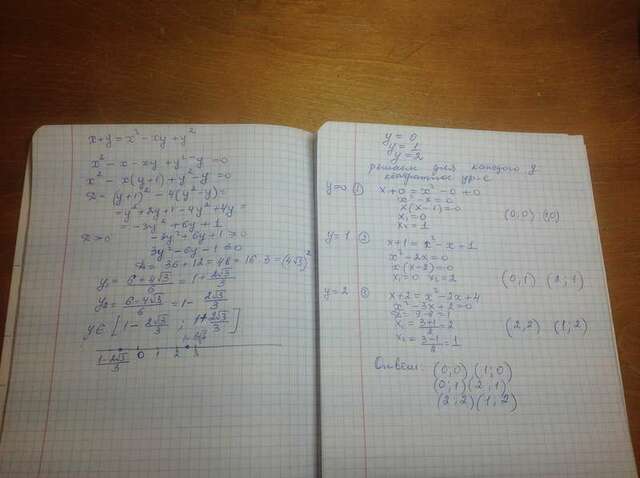 x+y=x²-xy+y²
x²-x-xy+y²-y=0
x²-x(y+1)+y²-y=0
D=(y+1)²-4(y²-y)=
=y²+2y+1-4y²+4y=
=-3y²+6y+1
D≥0 -3y²+6y+1≥0
3y²-6y-1≤0
D=36+12=48=16·3=(4√3)²
y₁=(6+4√3)/6=1+2√3/3
y₂=(6-4√3)/6=1-2√3/3
y∈[1-2√3/3; 1+2√3/3]
1+2√3/3
1-2√3/3 0 1 2 3
y=0
y=1
y=2
решаем для каждого y
квадратное ур-е
y=0 ① x+0=x²-0+0
x²-x=0
x(x-1)=0
x₁=0 (0;0) (1;0)
x₂=1
y=1 ② x+1=x²-x+1
x²-2x=0
x(x-2)=0
x₁=0 x₂=2 (0;1) (2;1)
y=2 ③ x+2=x²-2x+4
x²-3x+2=0
D=9-8=1
x₁=(3+1)/2=2 (2;2) (1;2)
x₂=(3-1)/2=1
Ответ: (0;0) (1;0)
(0;1) (2;1)
(2;2) (1;2)